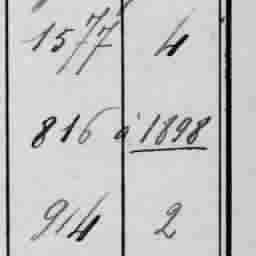 1577 4
816 à 1898
914 2